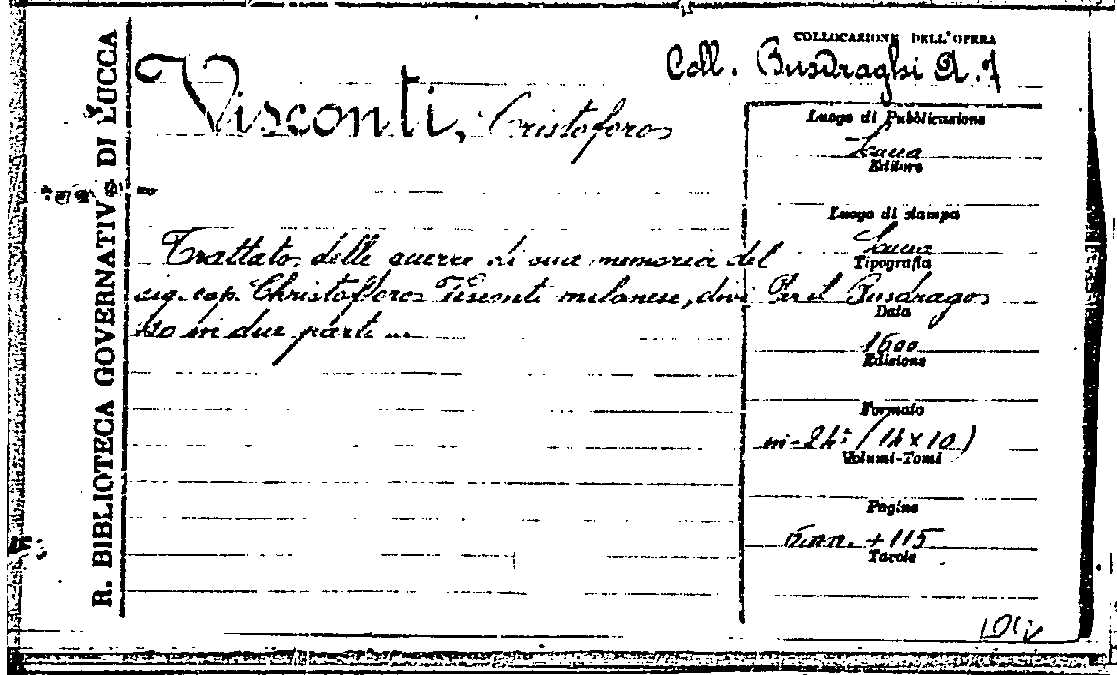 R. BIBLIOTECA GOVERNATIV. DI LUCCA
COLLOCAZIONE DELL'OPERA
Coll. Busdraghi A. 7
Visconti, Cristoforo
Luogo di Pubblicazione
Lucca
Editore
Luogo di stampa
Lucca
Tipografia
Per il Busdrago
Data
1600
Edizione
Formato
in-24º (14 x 10)
Volumi-Tomi
Pagine
6nn. + 115
Tavole
Trattato delle guerre di sua memoria del
sig. cap. Christofforo Visconti milanese, divi
so in due parti ...